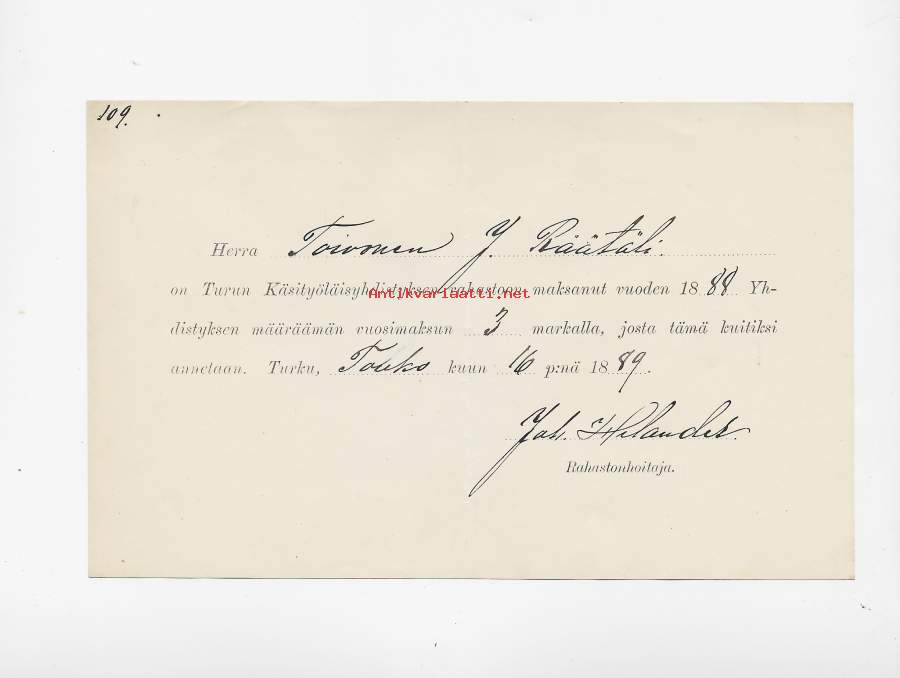 109.
Herra Toivonen J. Räätäli.
on Turun Käsityöläisyhdistyksen rahastoon maksanut vuoden 1888 Yh-
Antikvariaatti.net
distyksen määräämän vuosimaksun 3 markalla, josta tämä kuitiksi
annetaan. Turku, Touko kuun 16 p:nä 1889.
Joh. Helander.
Rahastonhoitaja.